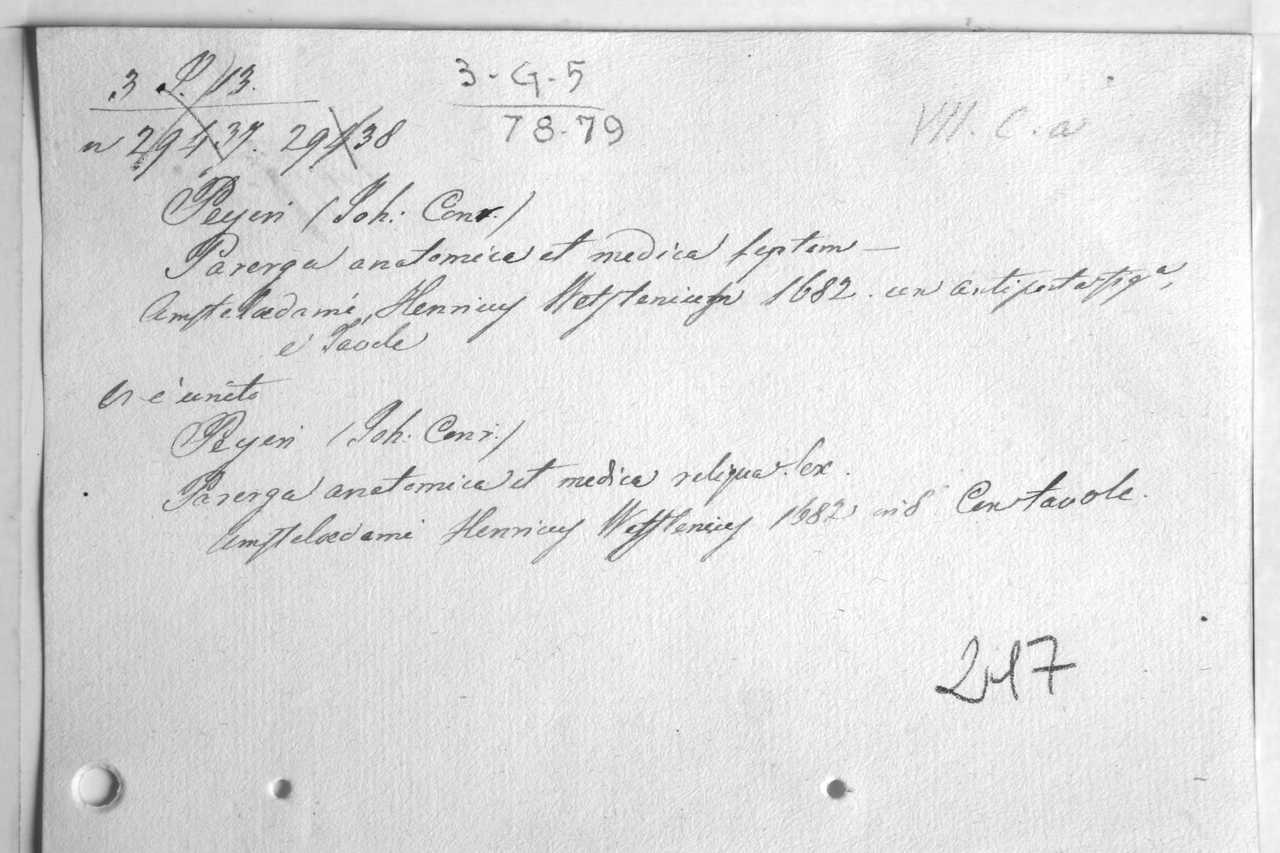 3. P. 13.
3-G-5
78-79
VII. C. a
n 29437. 29438
Peyeri (Joh: Conr.)
Parerga anatomica et medica septem —
Amstelædami, Henricus Wetstenium 1682. con antiporta fig.ª,
e Tavole
Vi è unito
Peyeri (Joh: Conr.)
Parerga anatomica et medica reliqua sex.
Amstelœdami Henricus Wetstenius 1682 in 8 Con tavole.
217